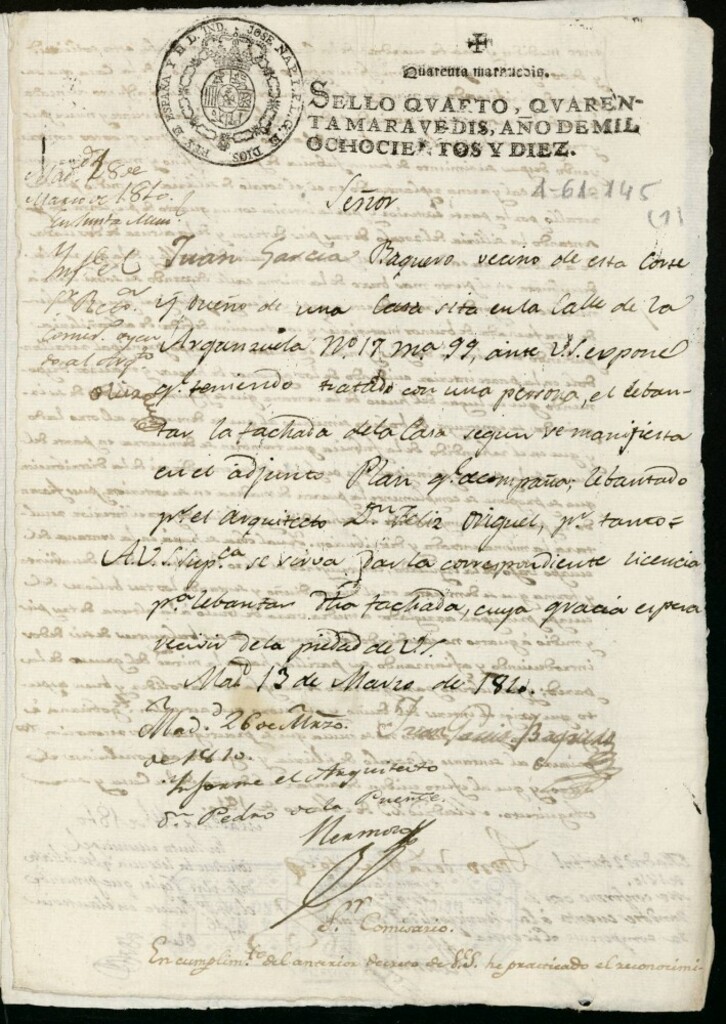 JOSE NAP. I. P. LA G. D. DIOS REY D. ESPAÑA Y D. L. IND.
Quarenta maravedis.
SELLO QVARTO, QVAREN-
TA MARAVEDIS, AÑO DE MIL
OCHOCIENTOS Y DIEZ.
1-61-145
(1)
Mad.d 18 de
Marzo de 1810.
En Junta Mun.l
Señor
Juan Garcia Baquero vecino de esta Corte
y dueño de una Casa sita en la Calle de la
Arganzuela Nº 17 mª 99, ante V.S. expone
q.e teniendo tratado con una persona, el leban-
tar la fachada de la Casa segun se manifiesta
en el adjunto Plan q.e acompaña, lebantado
p.r el Arquitecto D.n Feliz Origuel, p.r tanto =
A V.S. Sup.ca se sirva dar la correspondiente licencia
p.a lebantar dha fachada, cuya gracia espera
recivir de la piedad de V.S.
Mad.d 13 de Marzo de 1810.
Juan Garcia Baquero
Mad.d 26 de Marzo
de 1810.
Informe el Arquitecto
D.n Pedro de la Puente.
Hermosa
S.r Comisario.
En cumplim.to del anterior decreto de V.S. he practicado el reconocimi-